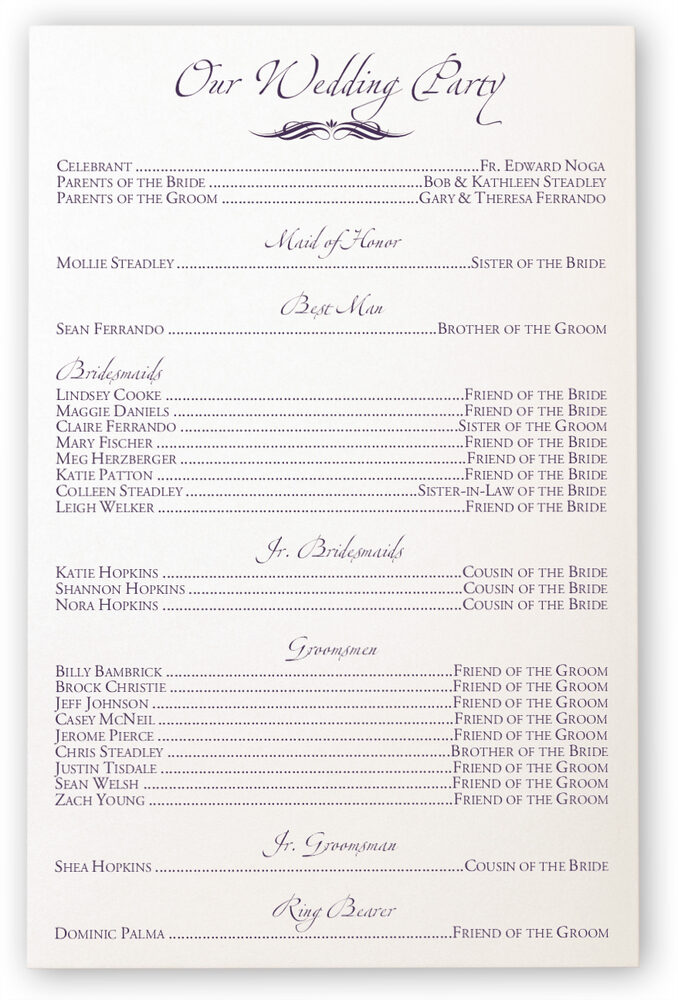 Our Wedding Party
Celebrant ........ Fr. Edward Noga
Parents of the Bride ........ Bob & Kathleen Steadley
Parents of the Groom ........ Gary & Theresa Ferrando
Maid of Honor
Mollie Steadley ........ Sister of the Bride
Best Man
Sean Ferrando ........ Brother of the Groom
Bridesmaids
Lindsey Cooke ........ Friend of the Bride
Maggie Daniels ........ Friend of the Bride
Claire Ferrando ........ Sister of the Groom
Mary Fischer ........ Friend of the Bride
Meg Herzberger ........ Friend of the Bride
Katie Patton ........ Friend of the Bride
Colleen Steadley ........ Sister-in-Law of the Bride
Leigh Welker ........ Friend of the Bride
Jr. Bridesmaids
Katie Hopkins ........ Cousin of the Bride
Shannon Hopkins ........ Cousin of the Bride
Nora Hopkins ........ Cousin of the Bride
Groomsmen
Billy Bambrick ........ Friend of the Groom
Brock Christie ........ Friend of the Groom
Jeff Johnson ........ Friend of the Groom
Casey McNeil ........ Friend of the Groom
Jerome Pierce ........ Friend of the Groom
Chris Steadley ........ Brother of the Bride
Justin Tisdale ........ Friend of the Groom
Sean Welsh ........ Friend of the Groom
Zach Young ........ Friend of the Groom
Jr. Groomsman
Shea Hopkins ........ Cousin of the Bride
Ring Bearer
Dominic Palma ........ Friend of the Groom